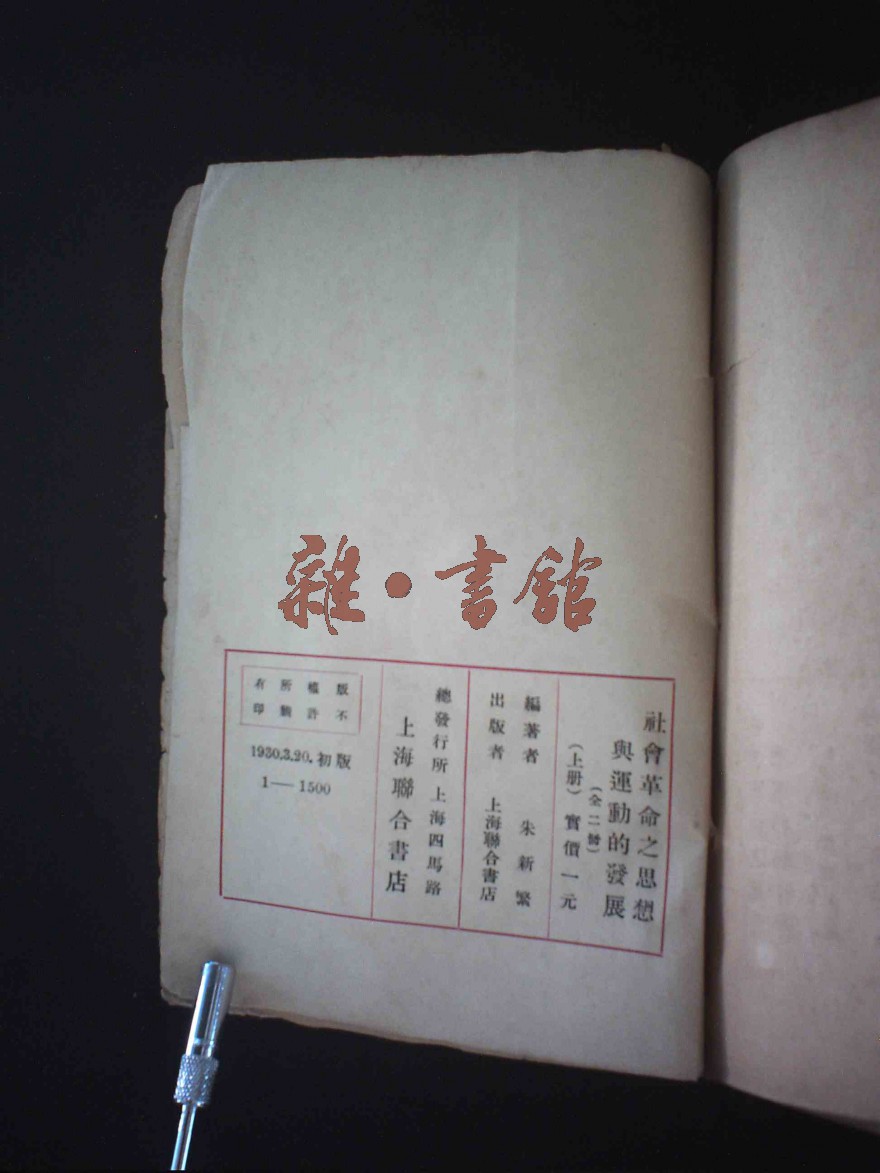 雜·書舘
社會革命之思想
與運動的發展
(全二冊)
(上册)實價一元
編著者 朱新繁
出版者 上海聯合書店
總發行所 上海四馬路
上海聯合書店
版權所有
不許翻印
1930.3.20.初版
1—1500